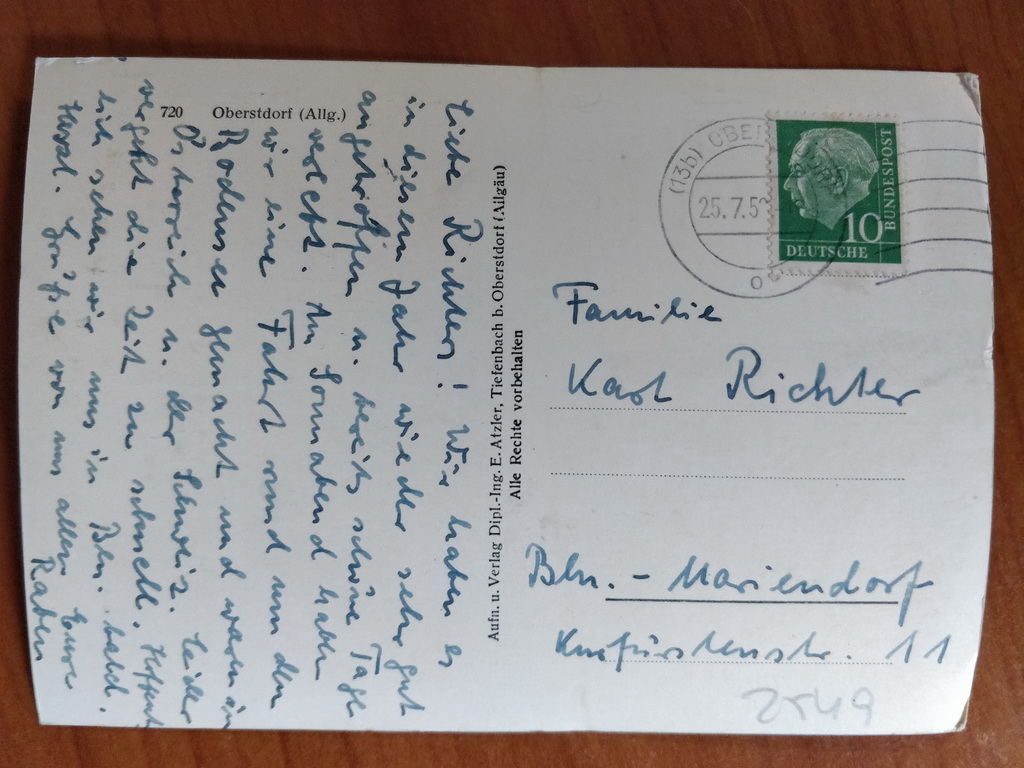 720 Oberstdorf (Allg.)
Liebe Richters! Wir haben es
in diesem Jahr wieder sehr gut
angetroffen u. bereits schöne Tage
verlebt. Am Sonnabend haben
wir eine Fahrt rund um den
Bodensee gemacht und waren in
Österreich u. der Schweiz. Leider
vergeht die Zeit zu schnell. Hoffent
lich sehen wir uns in Bln. bald.
Herzl. Grüße von uns allen Eure
Raben
Aufn. u. Verlag Dipl.-Ing. E. Atzler, Tiefenbach b. Oberstdorf (Allgäu)
Alle Rechte vorbehalten
(13b) OBE
25.7.5
10
DEUTSCHE
BUNDESPOST
Familie
Karl Richter
Bln. - Mariendorf
Kurfürstenstr. 11
2549